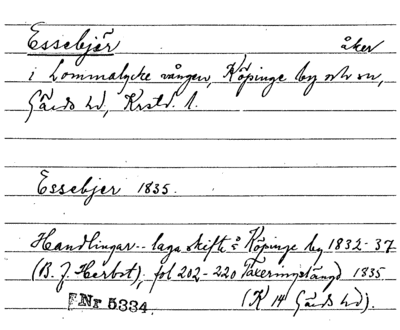 Essebjär åker
i Lommalycke vången, Köpinge by och sn,
Gärds hd, Krstd. l.
Essebjer 1835.
Handlingar -- laga skifte å Köpinge by 1832-37
(B. J. Herbst), fol 202-220 Taxeringslängd 1835
(K 14 Gärds hd).
Nr 5334